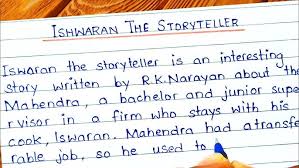 ISHWARAN THE STORYTELLER
Iswaran the storyteller is an interesting
story written by R.K.Narayan about the
Mahendra, a bachelor and junior supe
rvisor in a firm who stays with his
cook, Iswaran. Mahendra had a transfe
rable job, so he used to